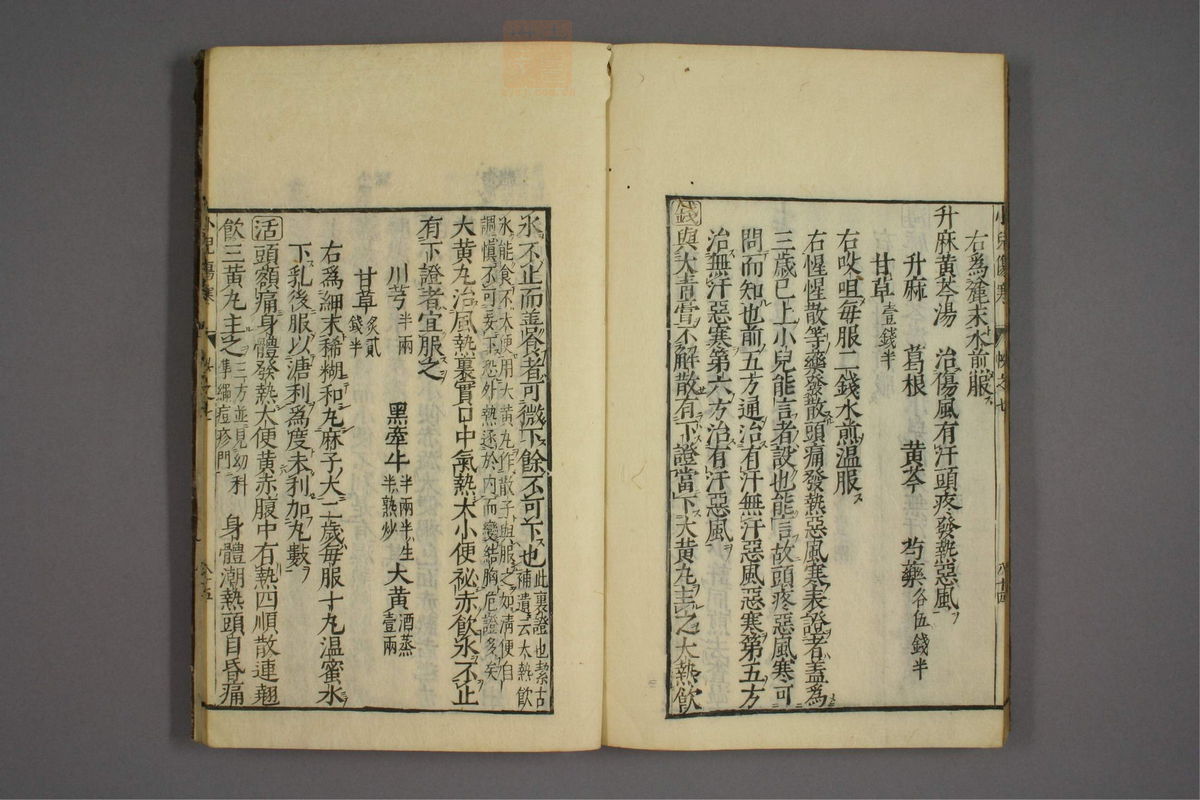 右為麄末水煎服
升麻黃芩湯 治傷風有汗頭疼發熱惡風
升麻 葛根 黃芩 芍藥各伍錢半
甘草壹錢半
右㕮咀每服二錢水煎温服
右惺惺散等藥發散頭痛發熱惡風寒表證者蓋為
三歲已上小兒能言者設也能言故頭疼惡風寒可
問而知也前五方通治有汗無汗惡風惡寒第五方
治無汗惡寒第六方治有汗惡風
錢與大黃當不解散有下證當下大黃丸主之大熱飲
水不止而善食者可微下餘不可下也此裏證也絜古補遺云太熱飲
水能食不大便用大黃丸作散子與服之如清便自
調慎不可妄下恐外熱逐於内而變結胸危證多矣
大黃丸治風熱裏實口中氣熱大小便祕赤飲水不止
有下證者宜服之
川芎半兩 黑牽牛半兩半生半熟炒 大黃酒蒸壹兩
甘草炙貳錢半
右為細末稀糊和丸麻子大二歲每服十丸温蜜水
下乳後服以溏利為度未利加丸數
活頭額痛身體發熱大便黃赤腹中有熱四順散連翹
飲三黃丸主之三方並見幼科準繩痘疹門 身體潮熱頭目昏痛